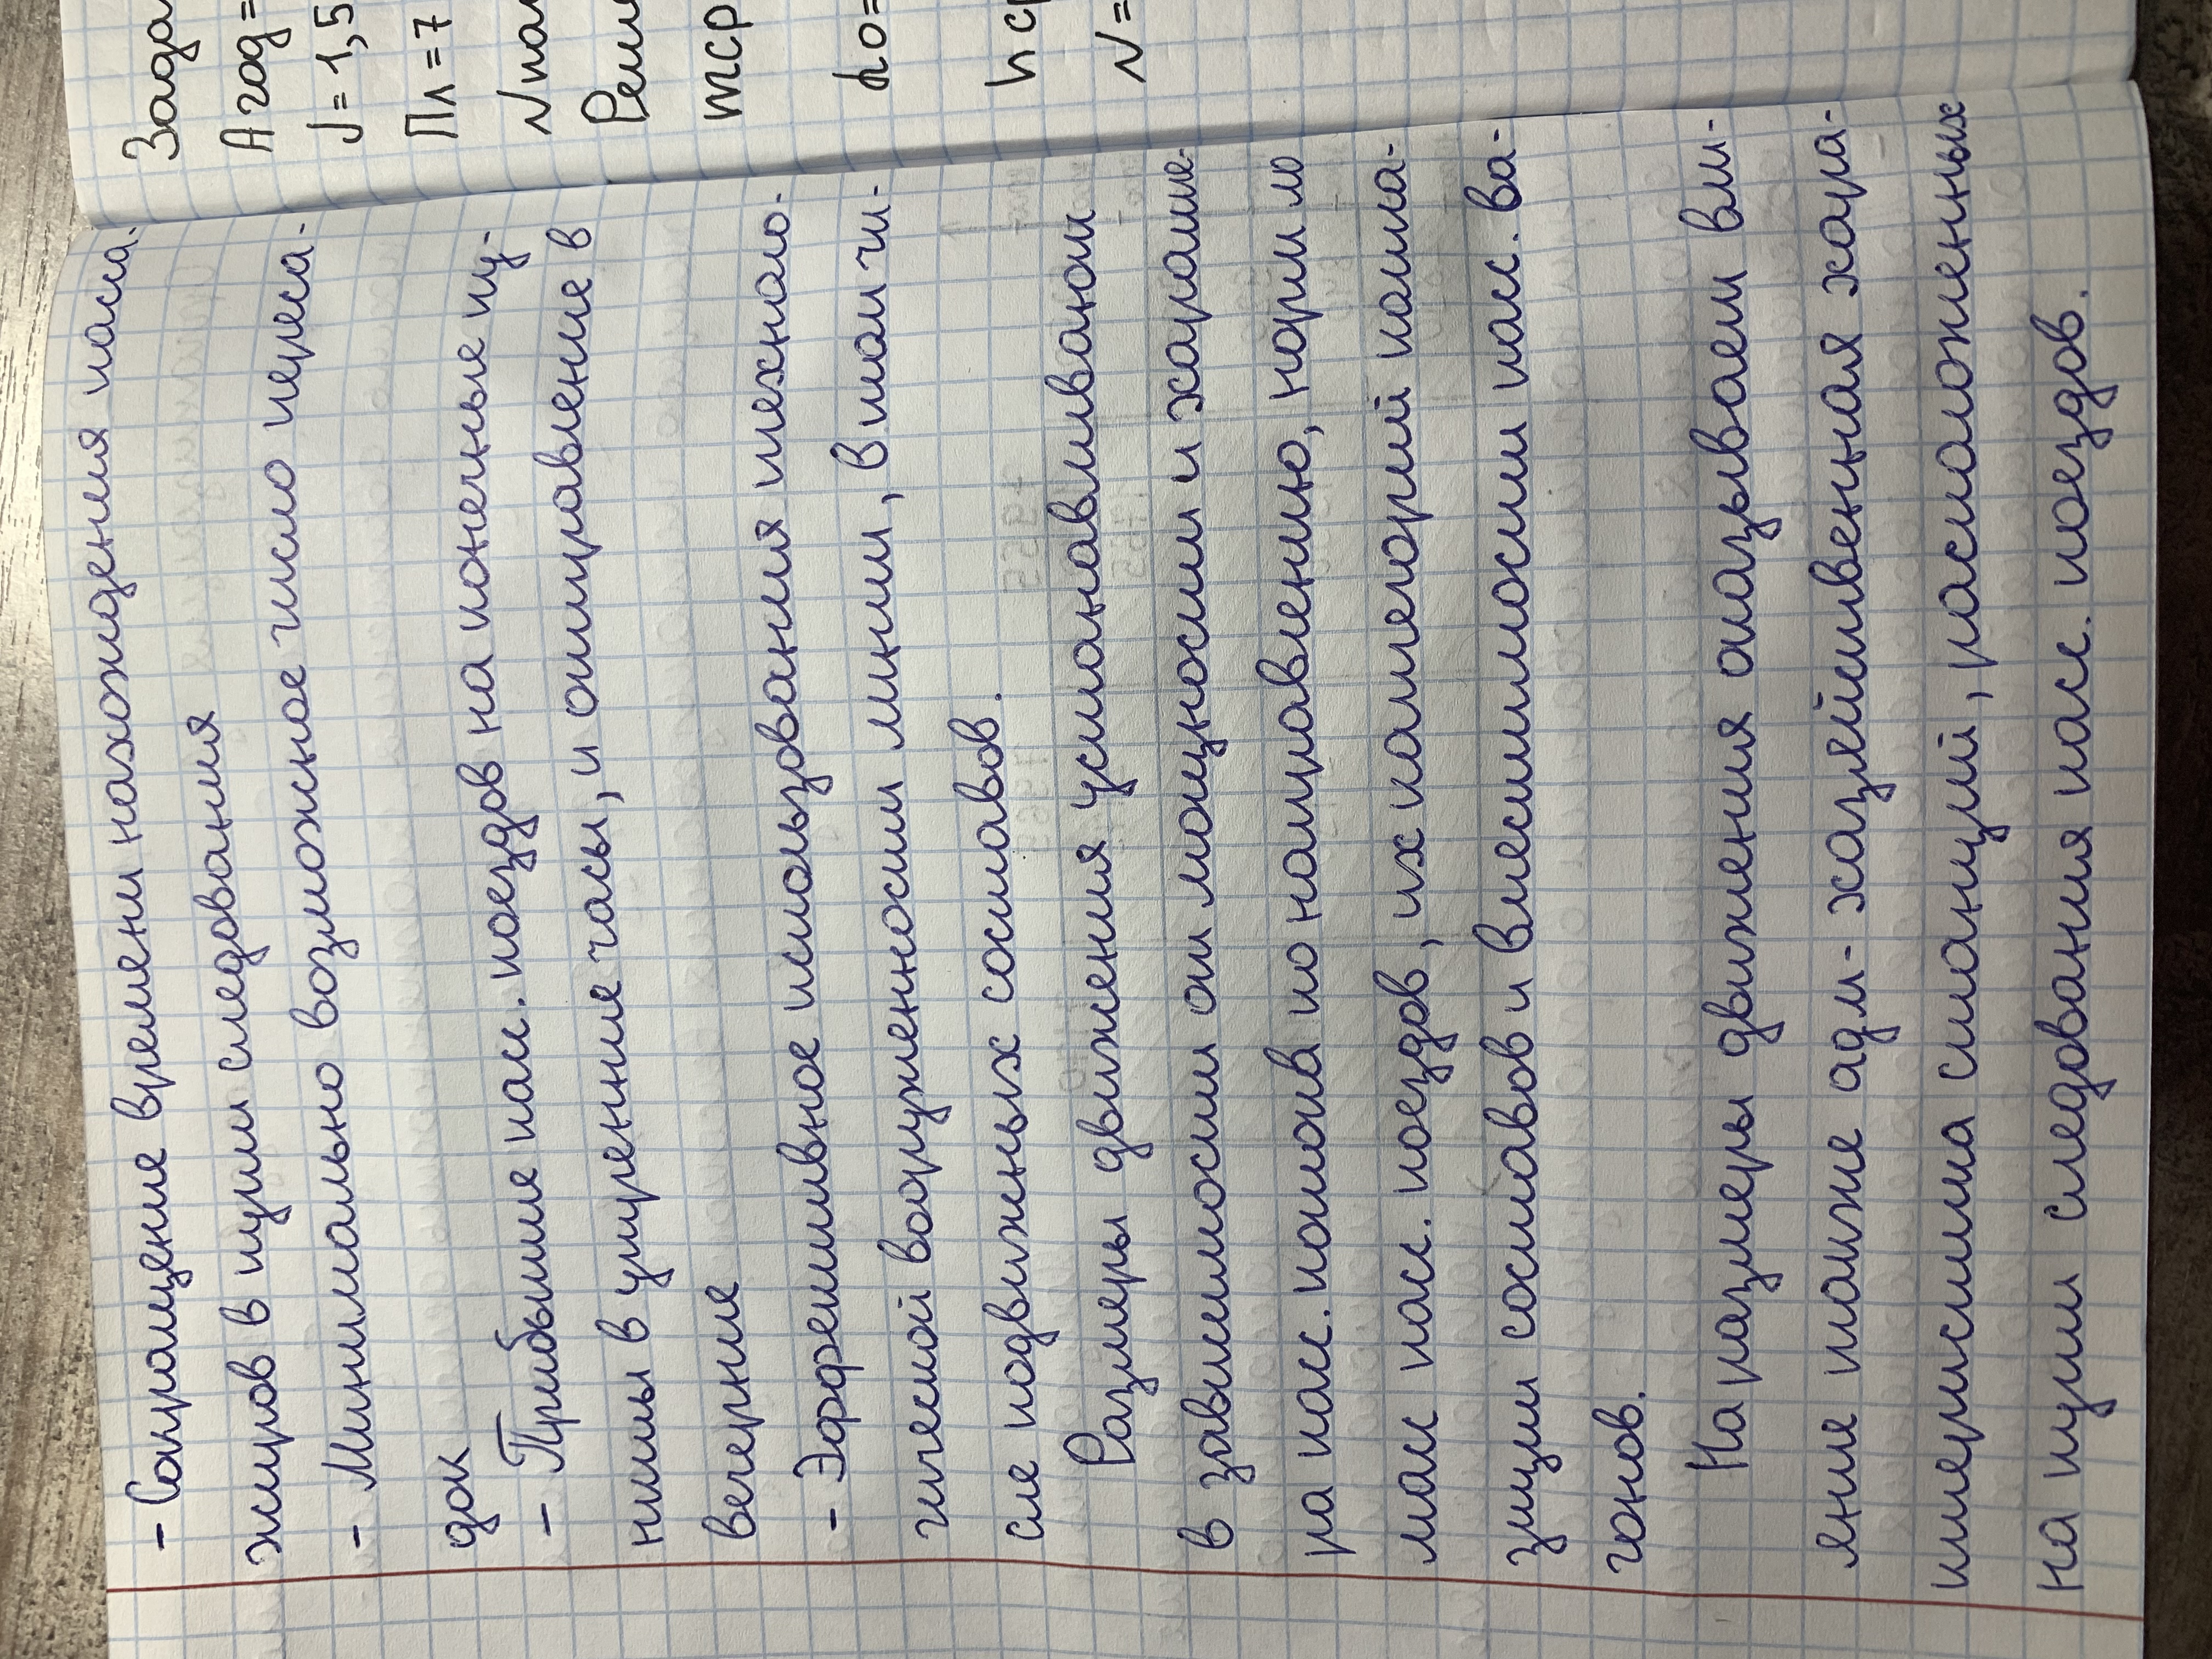 - Сокращение времени нахождения пасса-
жиров в пути следования
- Минимально возможное число переса-
док
- Прибытие пасс. поездов на конечные пу-
нкты в утренние часы, и отправление в
вечерние
- Эффективное использования техноло-
гической вооруженности линии, в том чи-
сле подвижных составов.
Размеры движения устанавливают
в зависимости от мощности и характе-
ра пасс. потока по направлению, норм ло
масс пасс. поездов, их категорий компо-
зиции составов и вместимости пасс. ва-
гонов.
На размеры движения оказывает вли-
яние также адм-хозяйственная хара-
ктеристика станций, расположенных
на пути следования пасс. поездов.
Зада
A год =
√=1,5
Пл=7
N пас
Реше
mcp
do=
hcp
N=